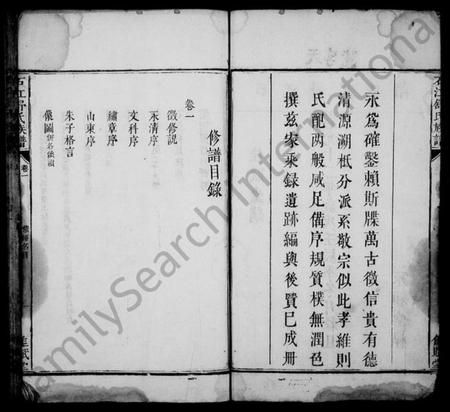 永為確鑿賴斯牒萬古徵信貴有德
清源溯柢分派系敬宗似此孝維則
氏配两般咸足備序規質樸無潤色
撰兹家乘録遺跡編與後賢已成冊
石江舒氏族譜
修譜目錄
卷一
徵修説
永清序
文科序
繡章序
山東序
朱子格言
像圖
石江舒氏族譜
卷一
FamilySearch International